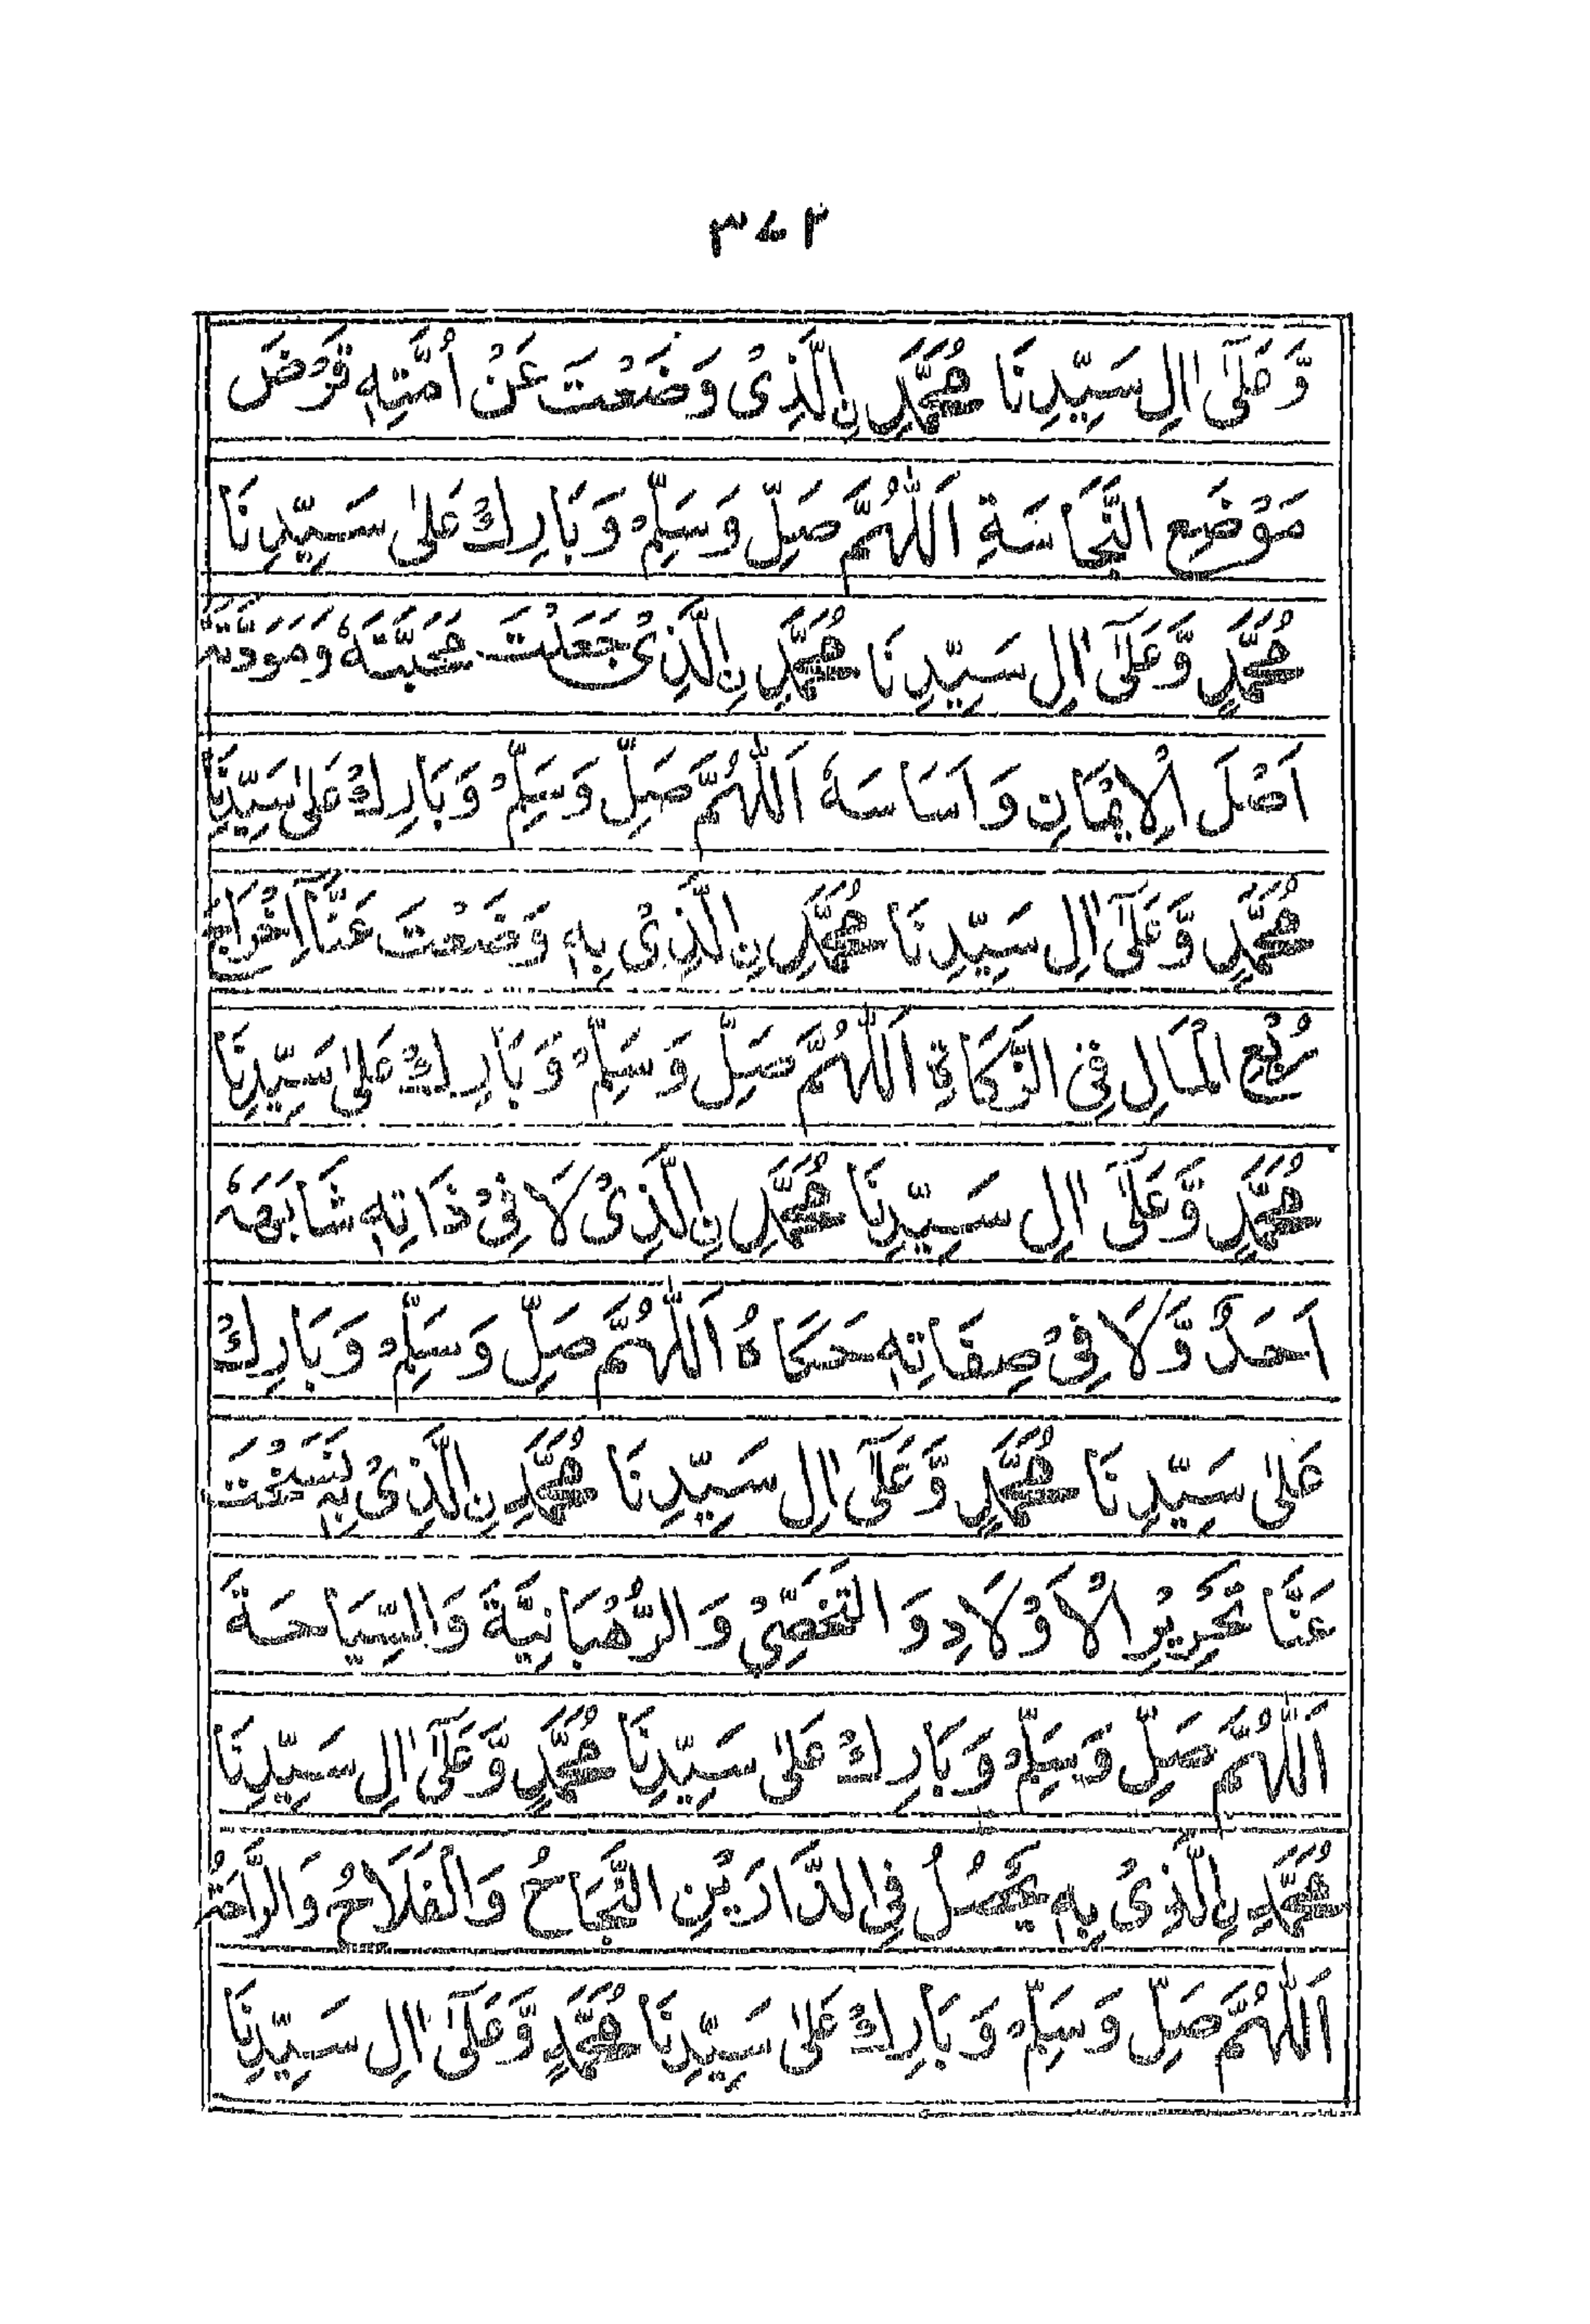 ۳۷۲
وَّعَلٰٓى اٰلِ سَيِّدِنَا مُحَمَّدِ نِ الَّذِىْ وَضَعْتَ عَنْ اُمَّتِهٖ قَرْضَ
مَوْضِعِ النَّجَاسَةِ اَللّٰهُمَّ صَلِّ وَسَلِّمْ وَبَارِكْ عَلٰى سَيِّدِنَا
مُحَمَّدٍ وَّعَلٰٓى اٰلِ سَيِّدِنَا مُحَمَّدِ نِ الَّذِىْ جَعَلْتَ مَحَبَّتَهٗ وَمَوَدَّتَهٗ
اَصْلَ الْاِيْمَانِ وَاَسَاسَهٗ اَللّٰهُمَّ صَلِّ وَسَلِّمْ وَبَارِكْ عَلٰى سَيِّدِنَا
مُحَمَّدٍ وَّعَلٰٓى اٰلِ سَيِّدِنَا مُحَمَّدِ نِ الَّذِىْ بِهٖ وَضَعْتَ عَنَّا اِخْرَاجَ
رُبْعِ الْمَالِ فِى الزَّكَاةِ اَللّٰهُمَّ صَلِّ وَسَلِّمْ وَبَارِكْ عَلٰى سَيِّدِنَا
مُحَمَّدٍ وَّعَلٰٓى اٰلِ سَيِّدِنَا مُحَمَّدِ نِ الَّذِىْ لَا فِىْ ذَاتِهٖ شَابَهَهٗ
اَحَدٌ وَّلَا فِىْ صِفَاتِهٖ حَكَاهُ اَللّٰهُمَّ صَلِّ وَسَلِّمْ وَبَارِكْ
عَلٰى سَيِّدِنَا مُحَمَّدٍ وَّعَلٰٓى اٰلِ سَيِّدِنَا مُحَمَّدِ نِ الَّذِىْ بِهٖ نَسَخْتَ
عَنَّا تَحْرِيْرَ الْاَوْلَادِ وَالتَّخَصِّىْ وَالرُّهْبَانِيَّةَ وَالسِّيَاحَةَ
اَللّٰهُمَّ صَلِّ وَسَلِّمْ وَبَارِكْ عَلٰى سَيِّدِنَا مُحَمَّدٍ وَّعَلٰٓى اٰلِ سَيِّدِنَا
مُحَمَّدِ نِ الَّذِىْ بِهٖ يَحْصُلُ فِى الدَّارَيْنِ النَّجَاحُ وَالْفَلَاحُ وَالرَّاحَةُ
اَللّٰهُمَّ صَلِّ وَسَلِّمْ وَبَارِكْ عَلٰى سَيِّدِنَا مُحَمَّدٍ وَّعَلٰٓى اٰلِ سَيِّدِنَا